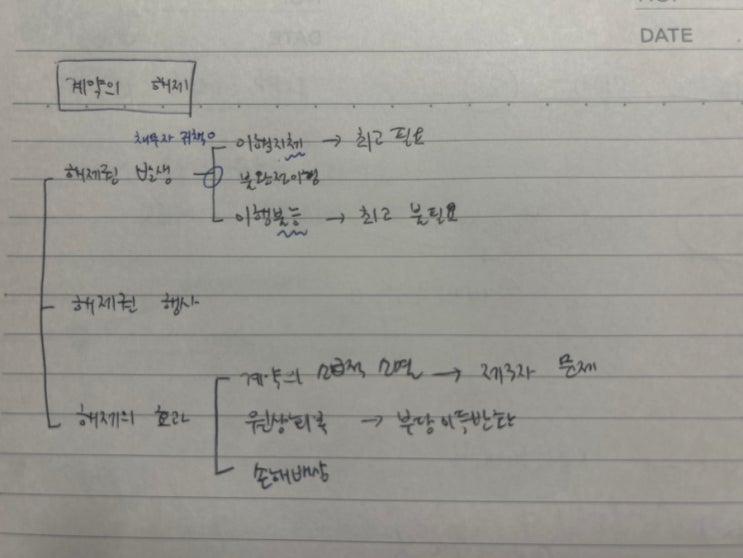 DATE
계약의 해제
채무자 귀책○
이행지체 → 최고 필요
해제권 발생
불완전이행
이행불능 → 최고 불필요
해제권 행사
계약의 소급적 소멸 → 제3자 문제
해제의 효과
원상회복 → 부당이득반환
손해배상